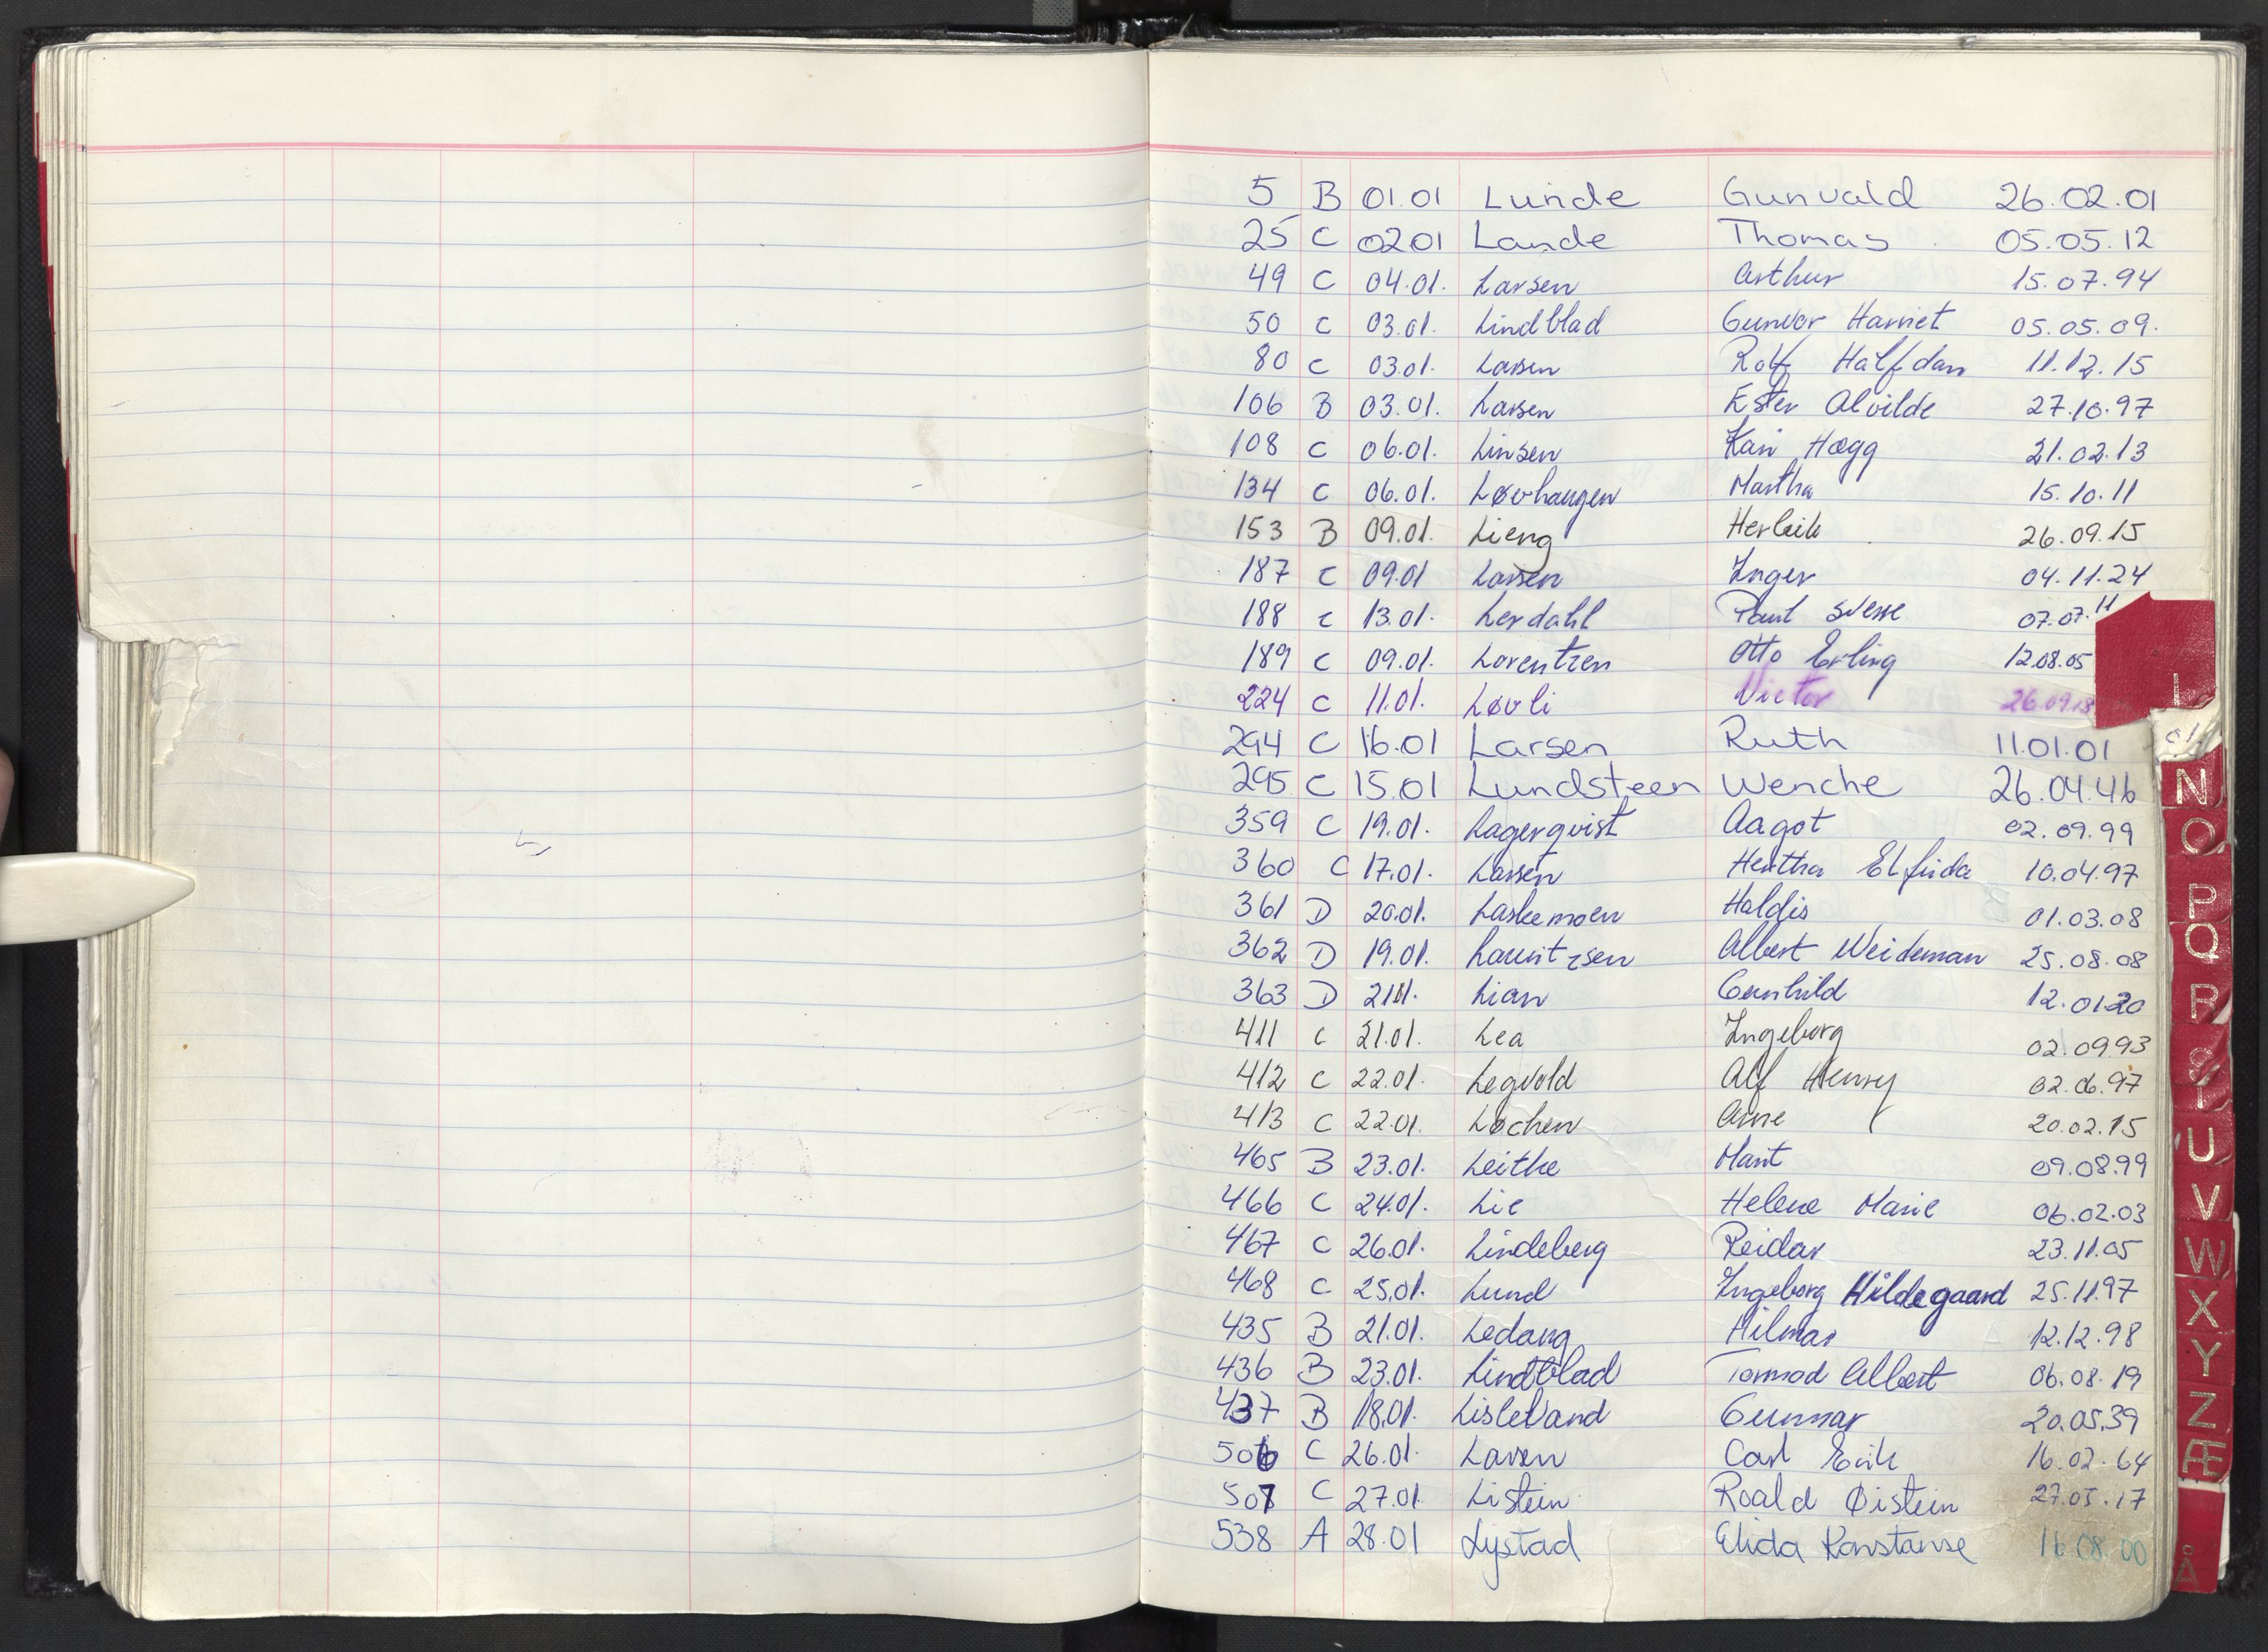 5 B 01.01 Lunde Gunvald 26.02.01
25 C 02.01 Lande Thomas 05.05.12
49 C 04.01. Larsen Arthur 15.07.94
50 C 03.01. Lindblad Gunvor Harriet 05.05.09.
80 C 03.01. Larsen Rolf Halfdan 11.12.15
106 B 03.01. Larsen Ester Alvilde 27.10.97
108 C 06.01. Linsen Kari Hægg 21.02.13
134 C 06.01. Løvhaugen Martha 15.10.11
153 B 09.01. Lieng Herleik 26.09.15
187 C 09.01 Larsen Inger 04.11.24
188 C 13.01. Lerdahl Paul Sverre 07.07.11
189 C 09.01. Lorentzen Otto Erling 12.08.05
224 C 11.01. Løvli Victor 26.09.18
294 C 16.01 Larsen Ruth 11.01.01
295 C 15.01 Lundsteen Wenche 26.04.46
359 C 19.01. Lagerqvist Aagot 02.09.99
360 C 17.01. Larsen Hertha Elfrida 10.04.97
361 D 20.01. Laskemoen Haldis 01.03.08
362 D 19.01. Lauritzsen Albert Weideman 25.08.08
363 D 21.01. Lian Gunhild 12.01.20
411 C 21.01. Lea Ingeborg 02.09.93
412 C 22.01. Legvold Alf Henry 02.06.97
413 C 22.01. Løchen Arne 20.02.15
465 B 23.01. Leithe Marit 09.08.99
466 C 24.01. Lie Helene Marie 06.02.03
467 C 26.01. Lindeberg Reidar 23.11.05
468 C 25.01. Lund Ingeborg Hildegaard 25.11.97
435 B 21.01. Ledang Hilmar 12.12.98
436 B 23.01. Lindtblad Tormod Albert 06.08.19
437 B 18.01. Lislevand Gunnar 20.05.39
506 C 26.01. Larsen Carl Erik 16.02.64
507 C 27.01. Listein Roald Øistein 27.05.17
538 A 28.01 Lystad Elida Konstanse 16.08.00
L
N
O
P
Q
R
S
T
U
V
W
X
Y
Z
Æ
Å